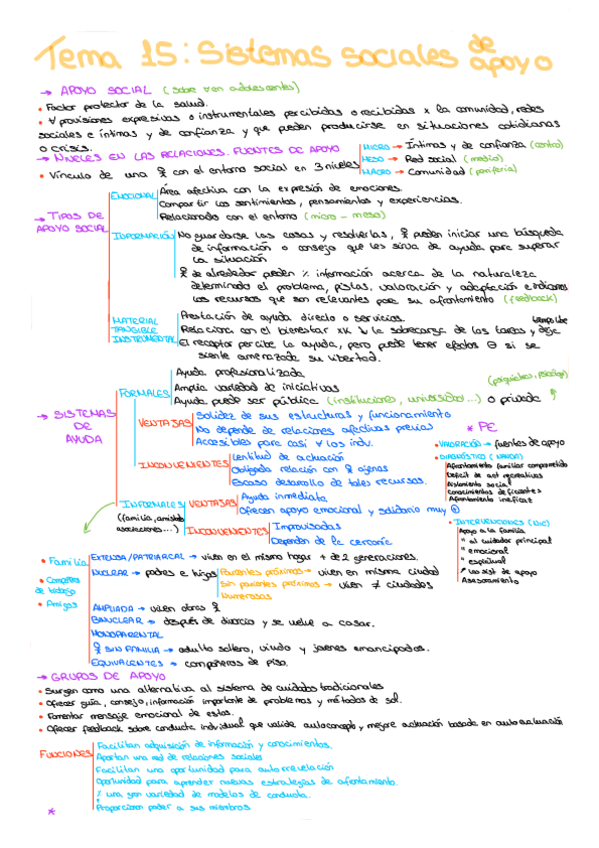 Tema 15: Sistemas sociales de apoyo
→ APOYO SOCIAL (sobre ∀ en adolescentes)
• Factor protector de la salud.
• ∀ provisiones expresivas o instrumentales percibidas o recibidas x la comunidad, redes
sociales e íntimas y de confianza y que pueden producirse en situaciones cotidianas
o crisis.
→ NIVELES EN LAS RELACIONES. FUENTES DE APOYO
• Vínculo de una con el entorno social en 3 niveles
MICRO → Íntimas y de confianza (centro)
MESO → Red social (medio)
MACRO → Comunidad (periferia)
→ TIPOS DE
APOYO SOCIAL
EMOCIONAL
Área afectiva con la expresión de emociones.
Compartir los sentimientos, pensamientos y experiencias.
Relacionado con el entorno (micro - meso)
INFORMACIÓN
No guardarse las cosas y resolverlas, pueden iniciar una búsqueda
de información o consejo que les sirva de ayuda para superar
la situación
de alrededor pueden % información acerca de la naturaleza
determinado el problema, pistas, valoración y adaptación e indicarnos
los recursos que son relevantes para su afrontamiento (feedback)
MATERIAL
TANGIBLE
INSTRUMENTAL
Prestación de ayuda directo o servicios.
Relaciona con el bienestar xk ↘ la sobrecarga de las tareas y deje tiempo libre
El receptor percibe la ayuda, pero puede tener efectos ⊖ si se
siente amenazada su libertad.
→ SISTEMAS
DE
AYUDA
FORMALES
Ayuda profesionalizada
Amplia variedad de iniciativas
Ayuda puede ser pública (instituciones, universidad...) o privada (psiquiatra, psicólogo)
VENTAJAS
Solidez de sus estructuras y funcionamiento
No depende de relaciones afectivas previas
Accesibles para casi ∀ los indv.
INCONVENIENTES
Lentitud de actuación
Obligada relación con ajenas
Escaso desarrollo de tales recursos.
INFORMALES
(familia, amistad, asociaciones....)
VENTAJAS
Ayuda inmediata
Ofrecen apoyo emocional y solidario muy ⊕
INCONVENIENTES
Improvisadas
Dependen de la cercanía
* PE
• VALORACIÓN → fuentes de apoyo
• DIAGNÓSTICO (NANDA)
Afrontamiento familiar comprometido
Déficit de act recreativas
Aislamiento social
Conocimientos deficientes
Afrontamiento ineficaz
• INTERVENCIONES (NIC)
Apoyo a la familia
" al cuidador principal
" emocional
" espiritual
↗ los sist de apoyo
Asesoramiento
• Familia
• Compañeros
de trabajo
• Amigos
EXTENSA/PATRIARCAL → viven en el mismo hogar + de 2 generaciones.
NUCLEAR → padres e hijos
Parientes próximos → viven en misma ciudad
Sin parientes próximos → viven ≠ ciudades
Numerosas
AMPLIADA → viven otras
BINUCLEAR → después de divorcio y se vuelve a casar.
MONOPARENTAL
SIN FAMILIA → adulto soltero, viudo y jóvenes emancipados.
EQUIVALENTES → compañeros de piso.
→ GRUPOS DE APOYO
• Surgen como una alternativa al sistema de cuidados tradicionales
• Ofrecer guía, consejo, información importante de problemas y métodos de sol.
• Fomentar mensaje emocional de estos.
• Ofrecer feedback sobre conducta individual que valide autoconcepto y mejore actuación basada en autoevaluación
FUNCIONES
Facilitan adquisición de información y conocimientos.
Aportan una red de relaciones sociales
Facilitan una oportunidad para autorrevelación
Oportunidad para aprender nuevas estrategias de afrontamiento.
% una gran variedad de modelos de conducta.
Proporcionan poder a sus miembros
*